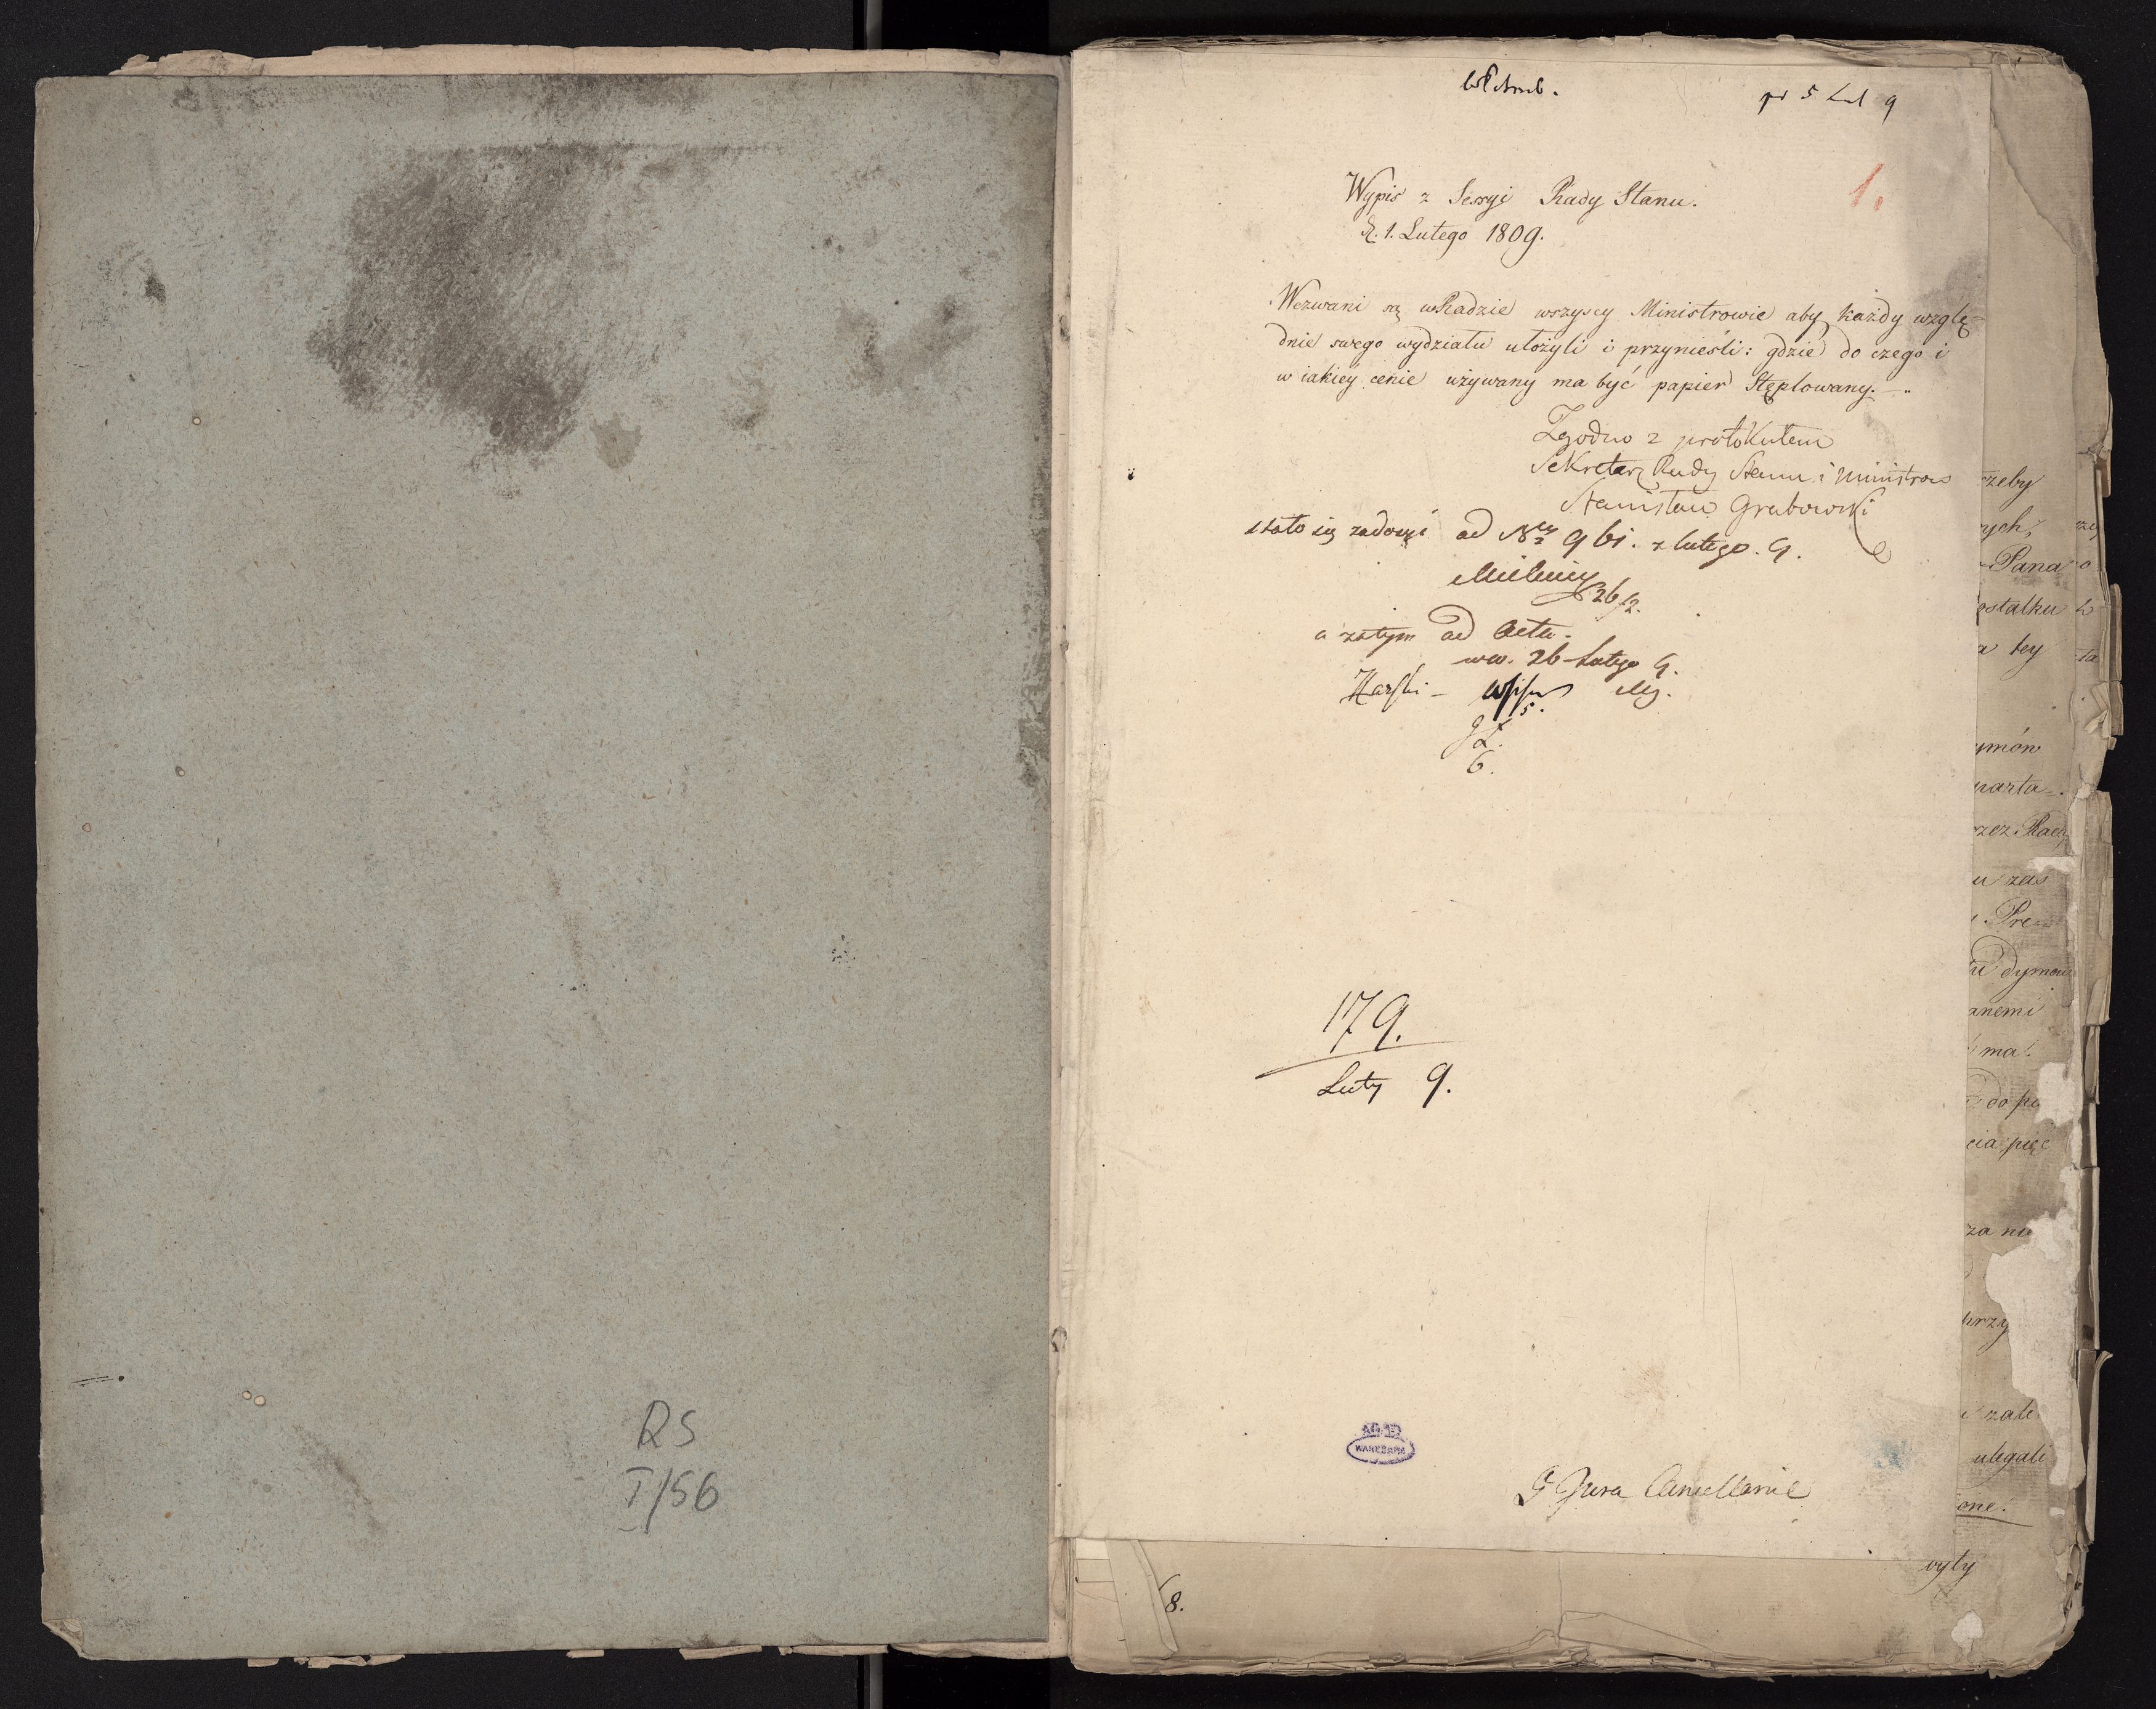 pr 5 Lut 9
1.
Wypis z Sessyi Rady Stanu.
d. 1. Lutego 1809.
Wezwani są w Radzie wszyscy Ministrowie aby każdy wzglę-
dnie swego wydziału ułożyli i przynieśli: gdzie do czego i
w iakiey cenie używany ma być papier Stęplowany.
Zgodno z protokułem
Sekretarz Rady Stanu i Ministrów
Stanisław Grabowski
stało się zadosyć ad 9 bi. z lutego. 9.
26/2.
a zatym ad Acta.
26 Lutego 9.
5.
6.
179.
Luty 9.
RS
I/56
AGAD
WARSZAWA
G Jura Cancellariae
8.
rzeby
nych,
Pana
ostatku
a tey
ymów
uarta-
rzez Rad
u zaś
Pre
tu dymow
anemi
ma.
do po
cia pięć
za na
przy
i zate
ulegali
one.